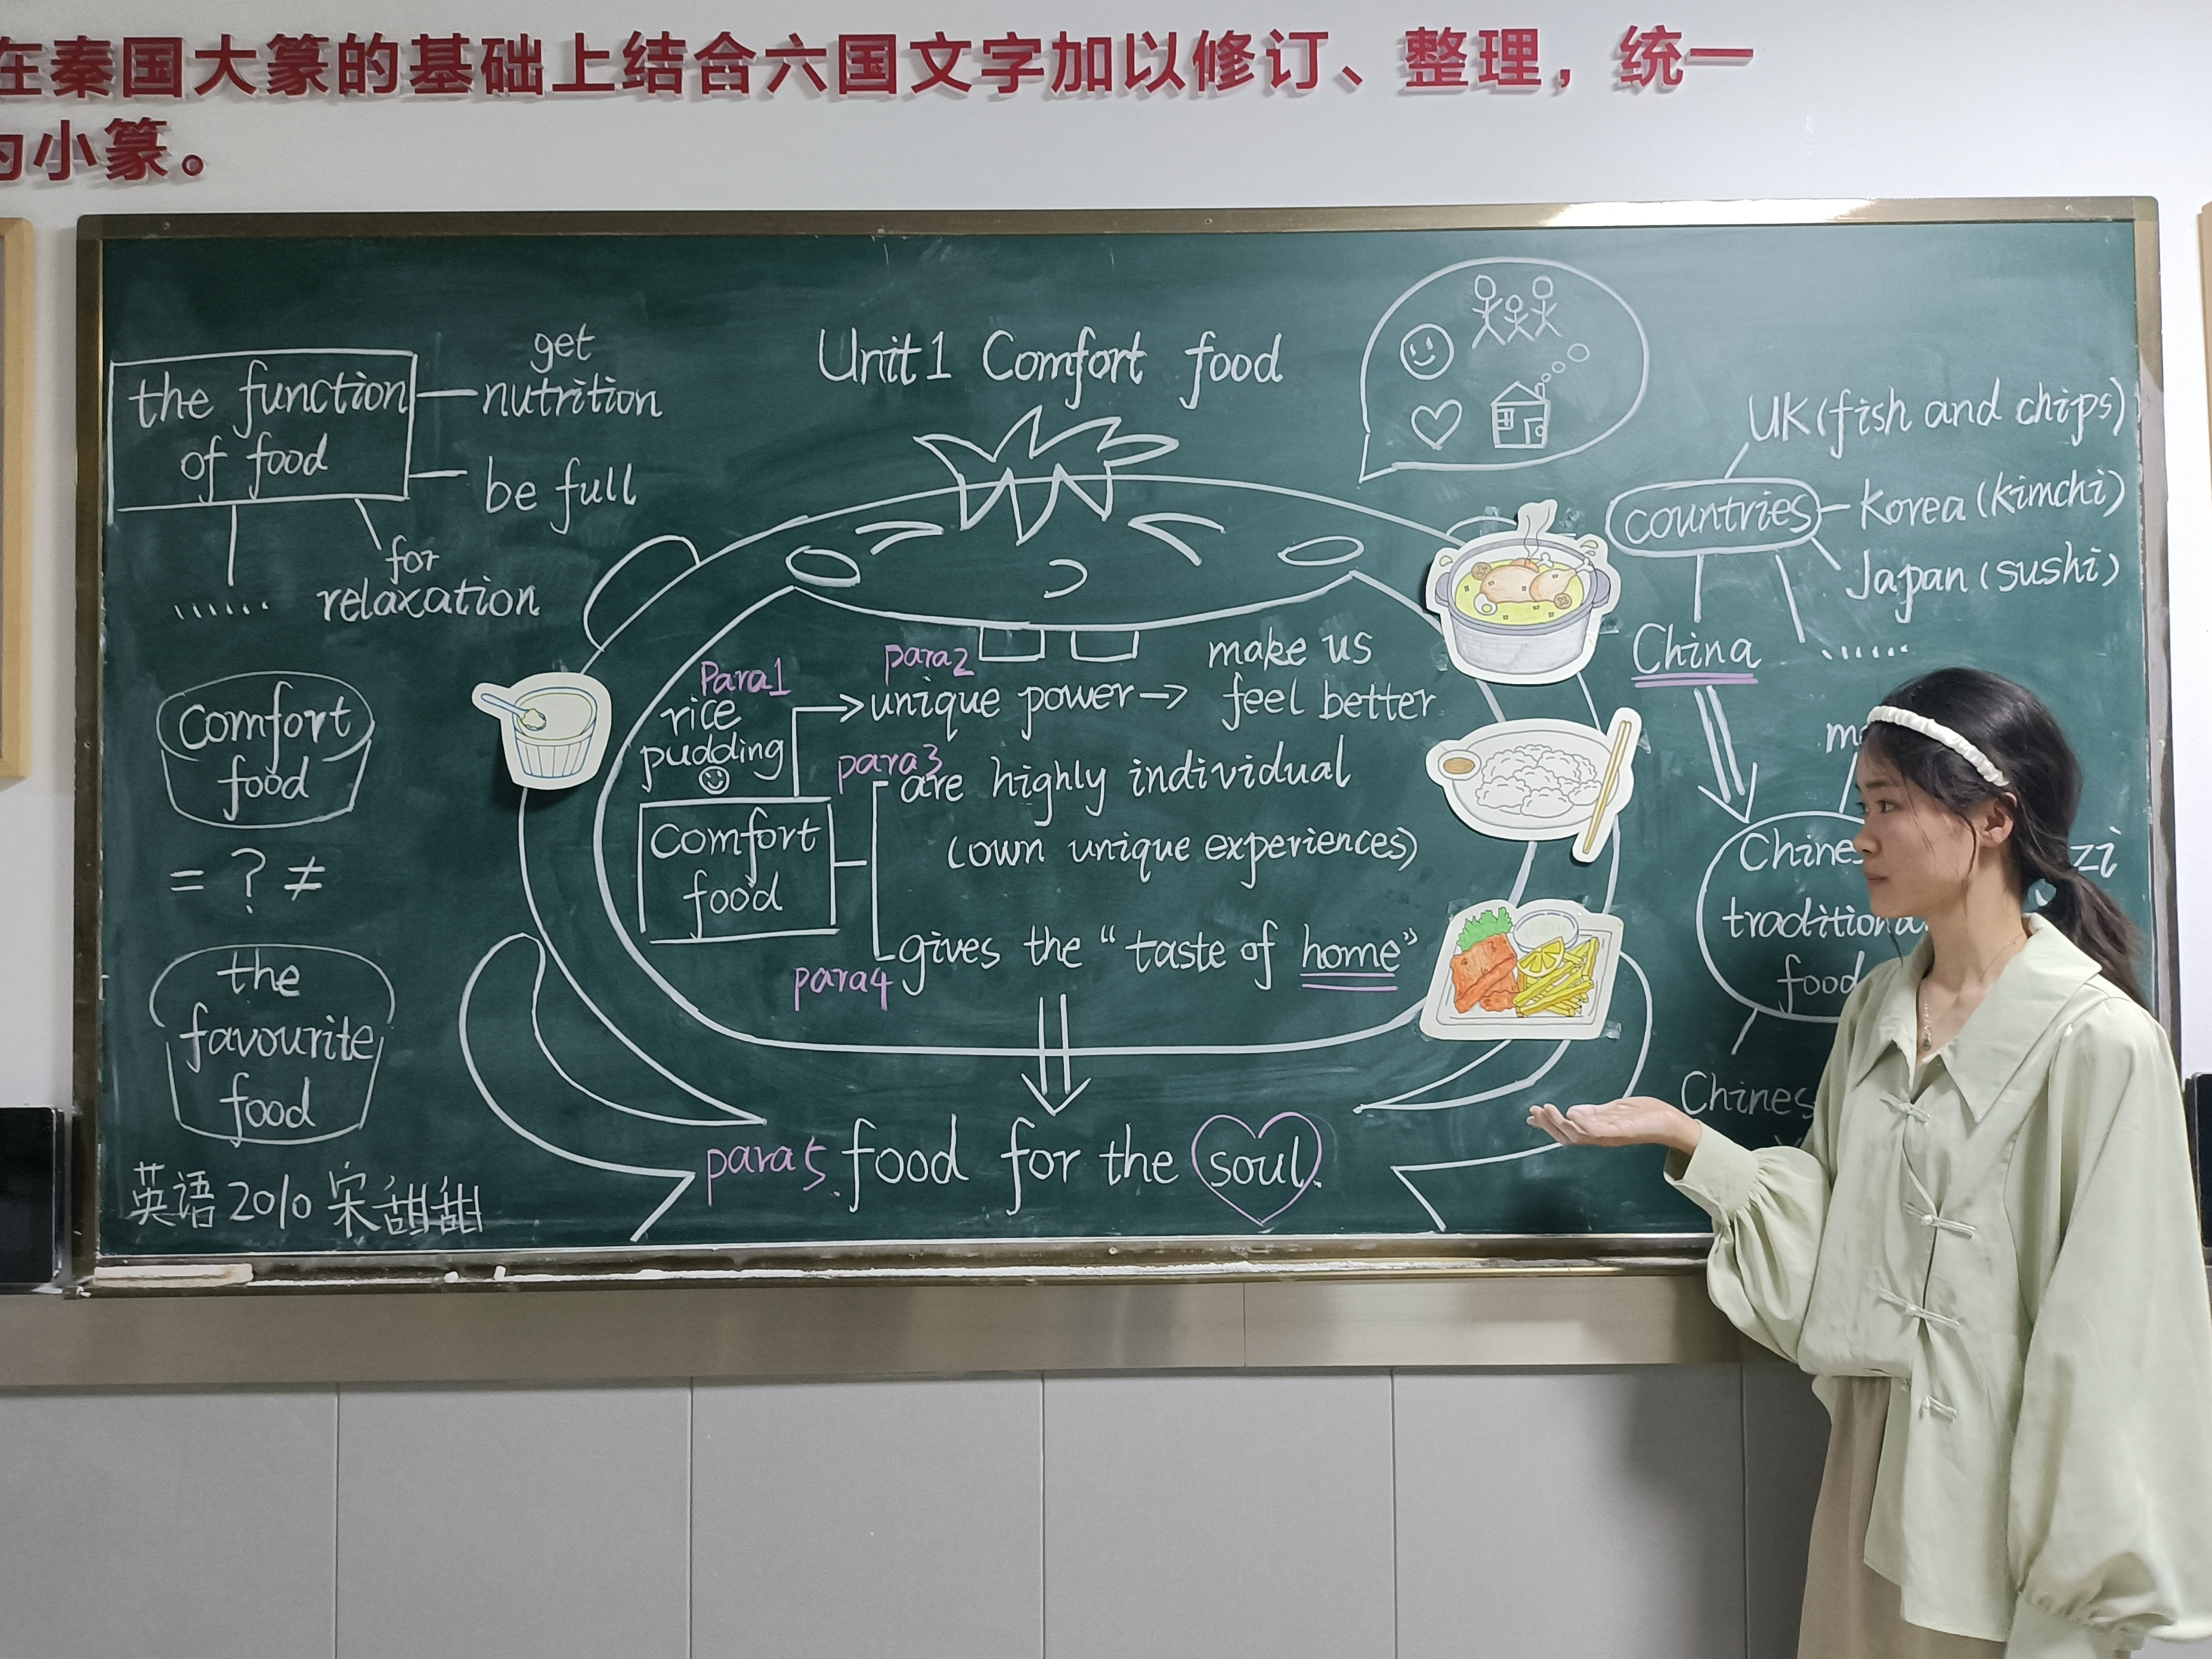 在秦国大篆的基础上结合六国文字加以修订、整理，统一
为小篆。
Unit1 Comfort food
the function
of food
get
nutrition
be full
for
relaxation
......
Comfort
food
= ? ≠
the
favourite
food
英语2010 宋甜甜
Para1
rice
pudding
Comfort
food
para2
unique power
make us
feel better
para3
are highly individual
(own unique experiences)
para4
gives the "taste of home"
para5. food for the soul.
countries
UK(fish and chips)
Korea(kimchi)
Japan(sushi)
......
China
food